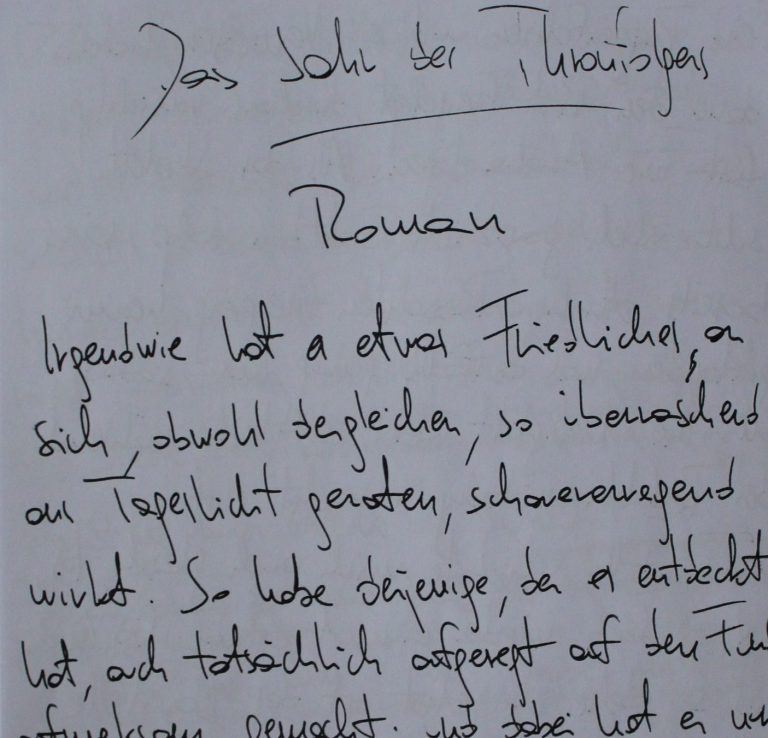 Das Jahr des Thronfolgers
Roman
Irgendwie hat es etwas Friedliches an
sich, obwohl dergleichen, so überraschend
ans Tageslicht geraten, schauererregend
wirkt. So habe derjenige, der es entdeckt
hat, auch tatsächlich aufgeregt auf den
aufmerksam gemacht. und dabei hat er